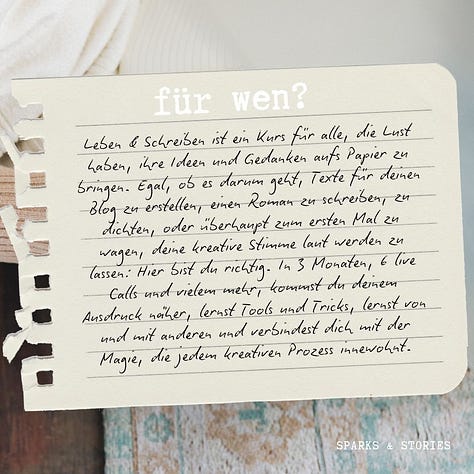 für wen?
Leben & Schreiben ist ein Kurs für alle, die Lust
haben, ihre Ideen und Gedanken aufs Papier zu
bringen. Egal, ob es darum geht, Texte für deinen
Blog zu erstellen, einen Roman zu schreiben, zu
dichten, oder überhaupt zum ersten Mal zu
wagen, deine kreative Stimme laut werden zu
lassen: Hier bist du richtig. In 3 Monaten, 6 live
Calls und vielem mehr, kommst du deinem
Ausdruck näher, lernst Tools und Tricks, lernst von
und mit anderen und verbindest dich mit der
Magie, die jedem kreativen Prozess innewohnt.
SPARKS & STORIES